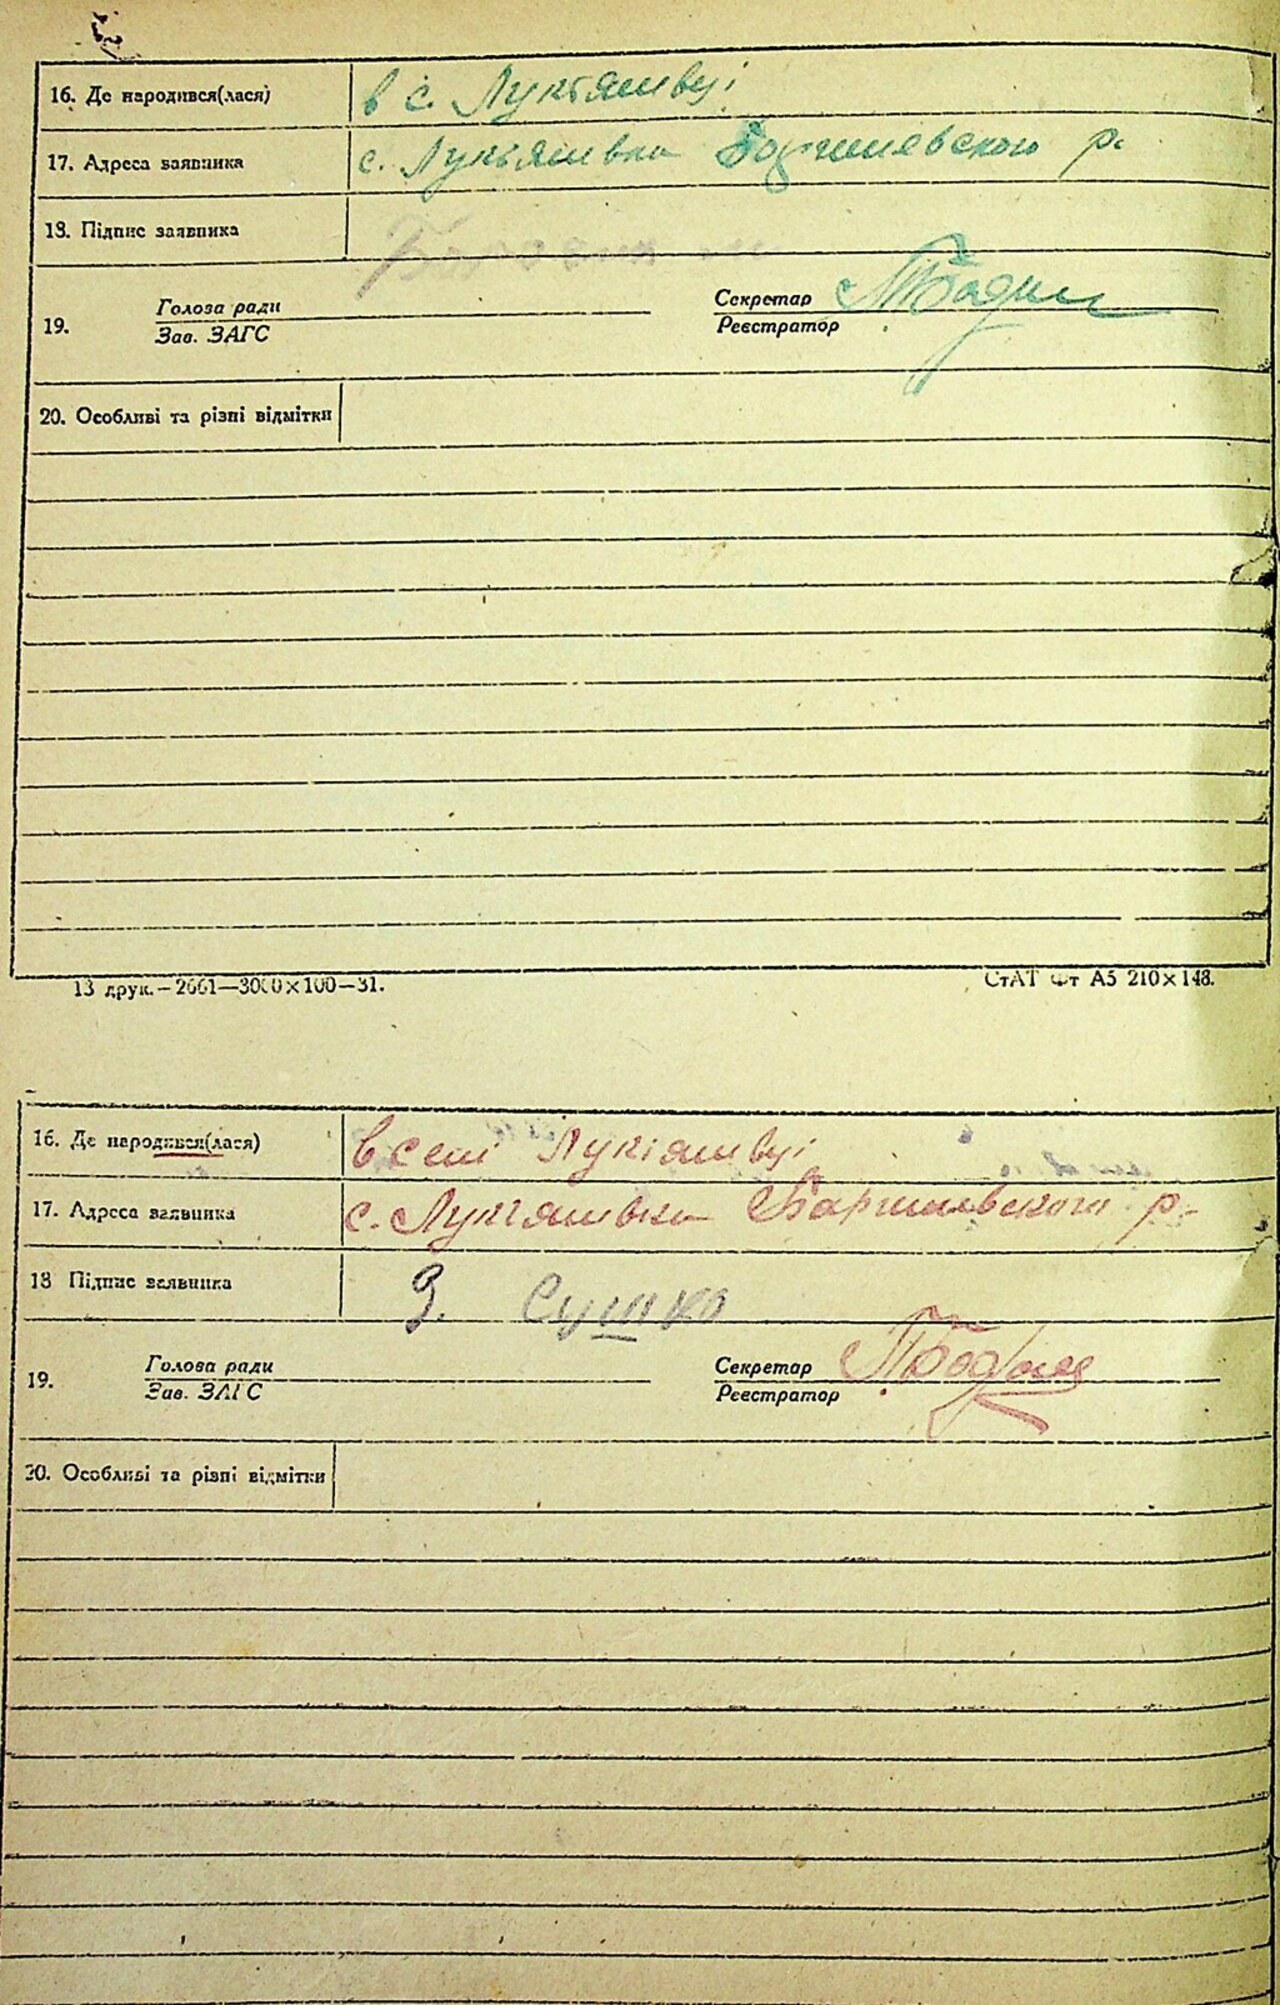 16. Де народився(лася) в с. Лукьяшвці
17. Адреса заявника с. Лукьяшвка р.
18. Підпис заявника
Голова ради Секретар
19.
Зав. ЗАГС Реєстратор
20. Особливі та різні відмітки
13 друк.—2661—3000×100—31. СтАТ Фт А5 210×148.
16. Де народився(лася) в селі Лукіяшвці
17. Адреса заявника с. р.
18 Підпис заявника З. Сушко
Голова ради Секретар
19.
Зав. ЗАГС Реєстратор
20. Особливі та різні відмітки